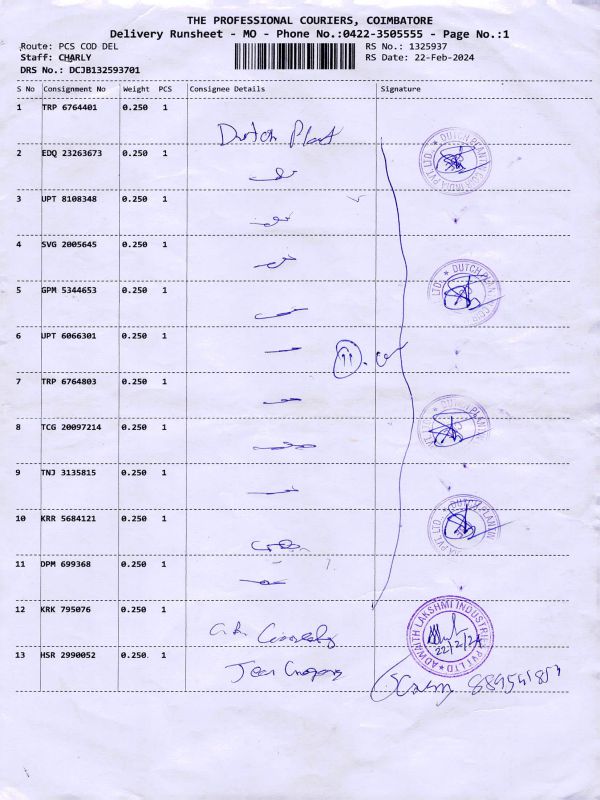 THE PROFESSIONAL COURIERS, COIMBATORE
Delivery Runsheet - MO - Phone No.:0422-3505555 - Page No.:1
Route: PCS COD DEL
RS No.: 1325937
Staff: CHARLY
RS Date: 22-Feb-2024
DRS No.: DCJB132593701
S No Consignment No Weight PCS Consignee Details Signature
1 TRP 6764401 0.250 1
Dutch Plant
2 EDQ 23263673 0.250 1
3 UPT 8108348 0.250 1
4 SVG 2005645 0.250 1
5 GPM 5344653 0.250 1
6 UPT 6066301 0.250 1
11
7 TRP 6764803 0.250 1
8 TCG 20097214 0.250 1
9 TNJ 3135815 0.250 1
10 KRR 5684121 0.250 1
11 DPM 699368 0.250 1
12 KRK 795076 0.250 1
ADWAITH LAKSHMI INDUSTRIES PVT LTD
22/2/24
13 HSR 2990052 0.250 1